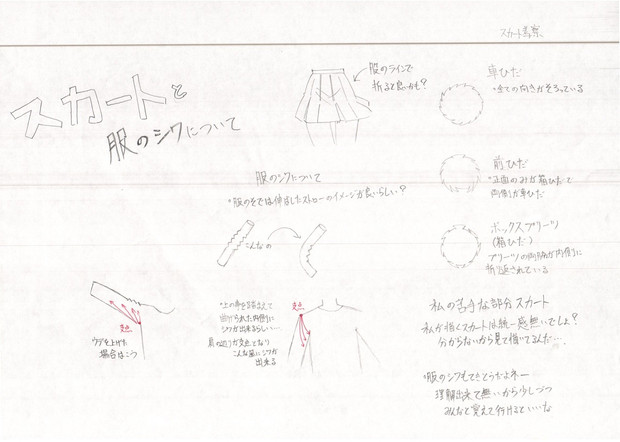 スカート考察
スカートと
服のシワについて
股のラインで
折ると良いかも?
車ひだ
*全ての向きがそろっている
前ひだ
*正面のみが箱ひだで
両側が車ひだ
ボックスプリーツ
(箱ひだ)
プリーツの両脇が内側に
折り返されている
服のシワについて
*服のそでは伸縮したストローのイメージが良いらしい?
こんなの
支点
ウデを上げた
場合はこう
*上の事を踏まえて
曲げられた内側に
シワが出来るらしい…
肩の辺りが支点となり
こんな風にシワが
出来る
支点
私の苦手な部分スカート
私が描くスカートは統一感無いでしょ?
分からないから見て描いてるんだ…
*服のシワもてきとうだよネー
理解出来て無いから少しづつ
みんなと覚えて行けるといいな